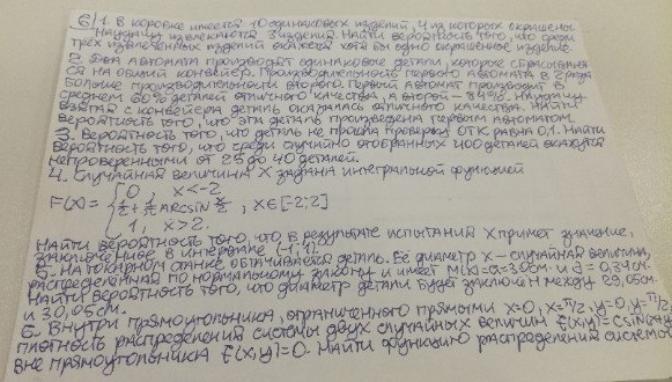 6) 1. В коробке имеется 10 одинаковых изделий, 4 из которых окрашены.
Наудачу извлекаются 3 изделия. Найти вероятность того, что среди
трёх извлечённых изделий окажется хотя бы одно окрашенное изделие.
2. Два автомата производят одинаковые детали, которые сбрасывают-
ся на общий конвейер. Производительность первого автомата в 2 раза
больше производительности второго. Первый автомат производит в
среднем 60% деталей отличного качества, а второй – 84%. Наудачу
взятая с конвейера деталь оказалась отличного качества. Найти
вероятность того, что эта деталь произведена первым автоматом.
3. Вероятность того, что деталь не прошла проверку ОТК равна 0,1. Найти
вероятность того, что среди случайно отобранных 400 деталей окажутся
непроверенными от 25 до 40 деталей.
4. Случайная величина X задана интегральной функцией
F(x) = { 0, x<-2,
1/2 + 1/π arcsin x/2, x∈[-2;2]
1, x>2.
Найти вероятность того, что в результате испытания X примет значение,
заключённое в интервале (-1;1).
5. На токарном станке обтачивается деталь. Её диаметр X – случайная величина,
распределённая по нормальному закону и имеет M(x)=a=30см и σ=0,34см.
Найти вероятность того, что диаметр детали будет заключён между 29,05см
и 30,05см.
6. Внутри прямоугольника, ограниченного прямыми x=0, x=π/2, y=0, y=π/2,
плотность распределения системы двух случайных величин f(x;y)=Csin(x+y)
вне прямоугольника f(x;y)=0. Найти функцию распределения системы